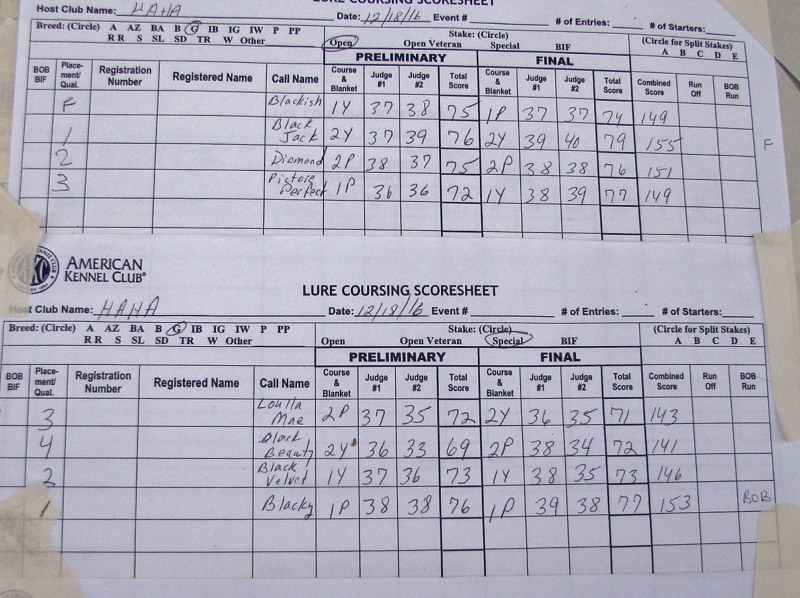 LURE COURSING SCORESHEET
Host Club Name: HAHA Date: 12/18/16 Event # # of Entries: # of Starters:
Breed: (Circle) A AZ BA B G IB IG IW P PP Stake: (Circle) (Circle for Split Stakes)
RR S SL SD TR W Other Open Open Veteran Special BIF A B C D E
PRELIMINARY FINAL
BOB BIF Place-ment/ Qual. Registration Number Registered Name Call Name Course & Blanket Judge #1 Judge #2 Total Score Course & Blanket Judge #1 Judge #2 Total Score Combined Score Run Off BOB Run
F Blackish 1Y 37 38 75 1P 37 37 74 149
1 Black Jack 2Y 37 39 76 2Y 39 40 79 155 F
2 Diamond 2P 38 37 75 2P 38 38 76 151
3 Picture Perfect 1P 36 36 72 1Y 38 39 77 149
AMERICAN
KENNEL CLUB®
LURE COURSING SCORESHEET
Host Club Name: HAHA Date: 12/18/16 Event # # of Entries: # of Starters:
Breed: (Circle) A AZ BA B G IB IG IW P PP Stake: (Circle) (Circle for Split Stakes)
RR S SL SD TR W Other Open Open Veteran Special BIF A B C D E
PRELIMINARY FINAL
BOB BIF Place-ment/ Qual. Registration Number Registered Name Call Name Course & Blanket Judge #1 Judge #2 Total Score Course & Blanket Judge #1 Judge #2 Total Score Combined Score Run Off BOB Run
3 Loulla Mae 2P 37 35 72 2Y 36 35 71 143
4 Black Beauty 2Y 36 33 69 2P 38 34 72 141
2 Black Velvet 1Y 37 36 73 1Y 38 35 73 146
1 Blacky 1P 38 38 76 1P 39 38 77 153 BOB